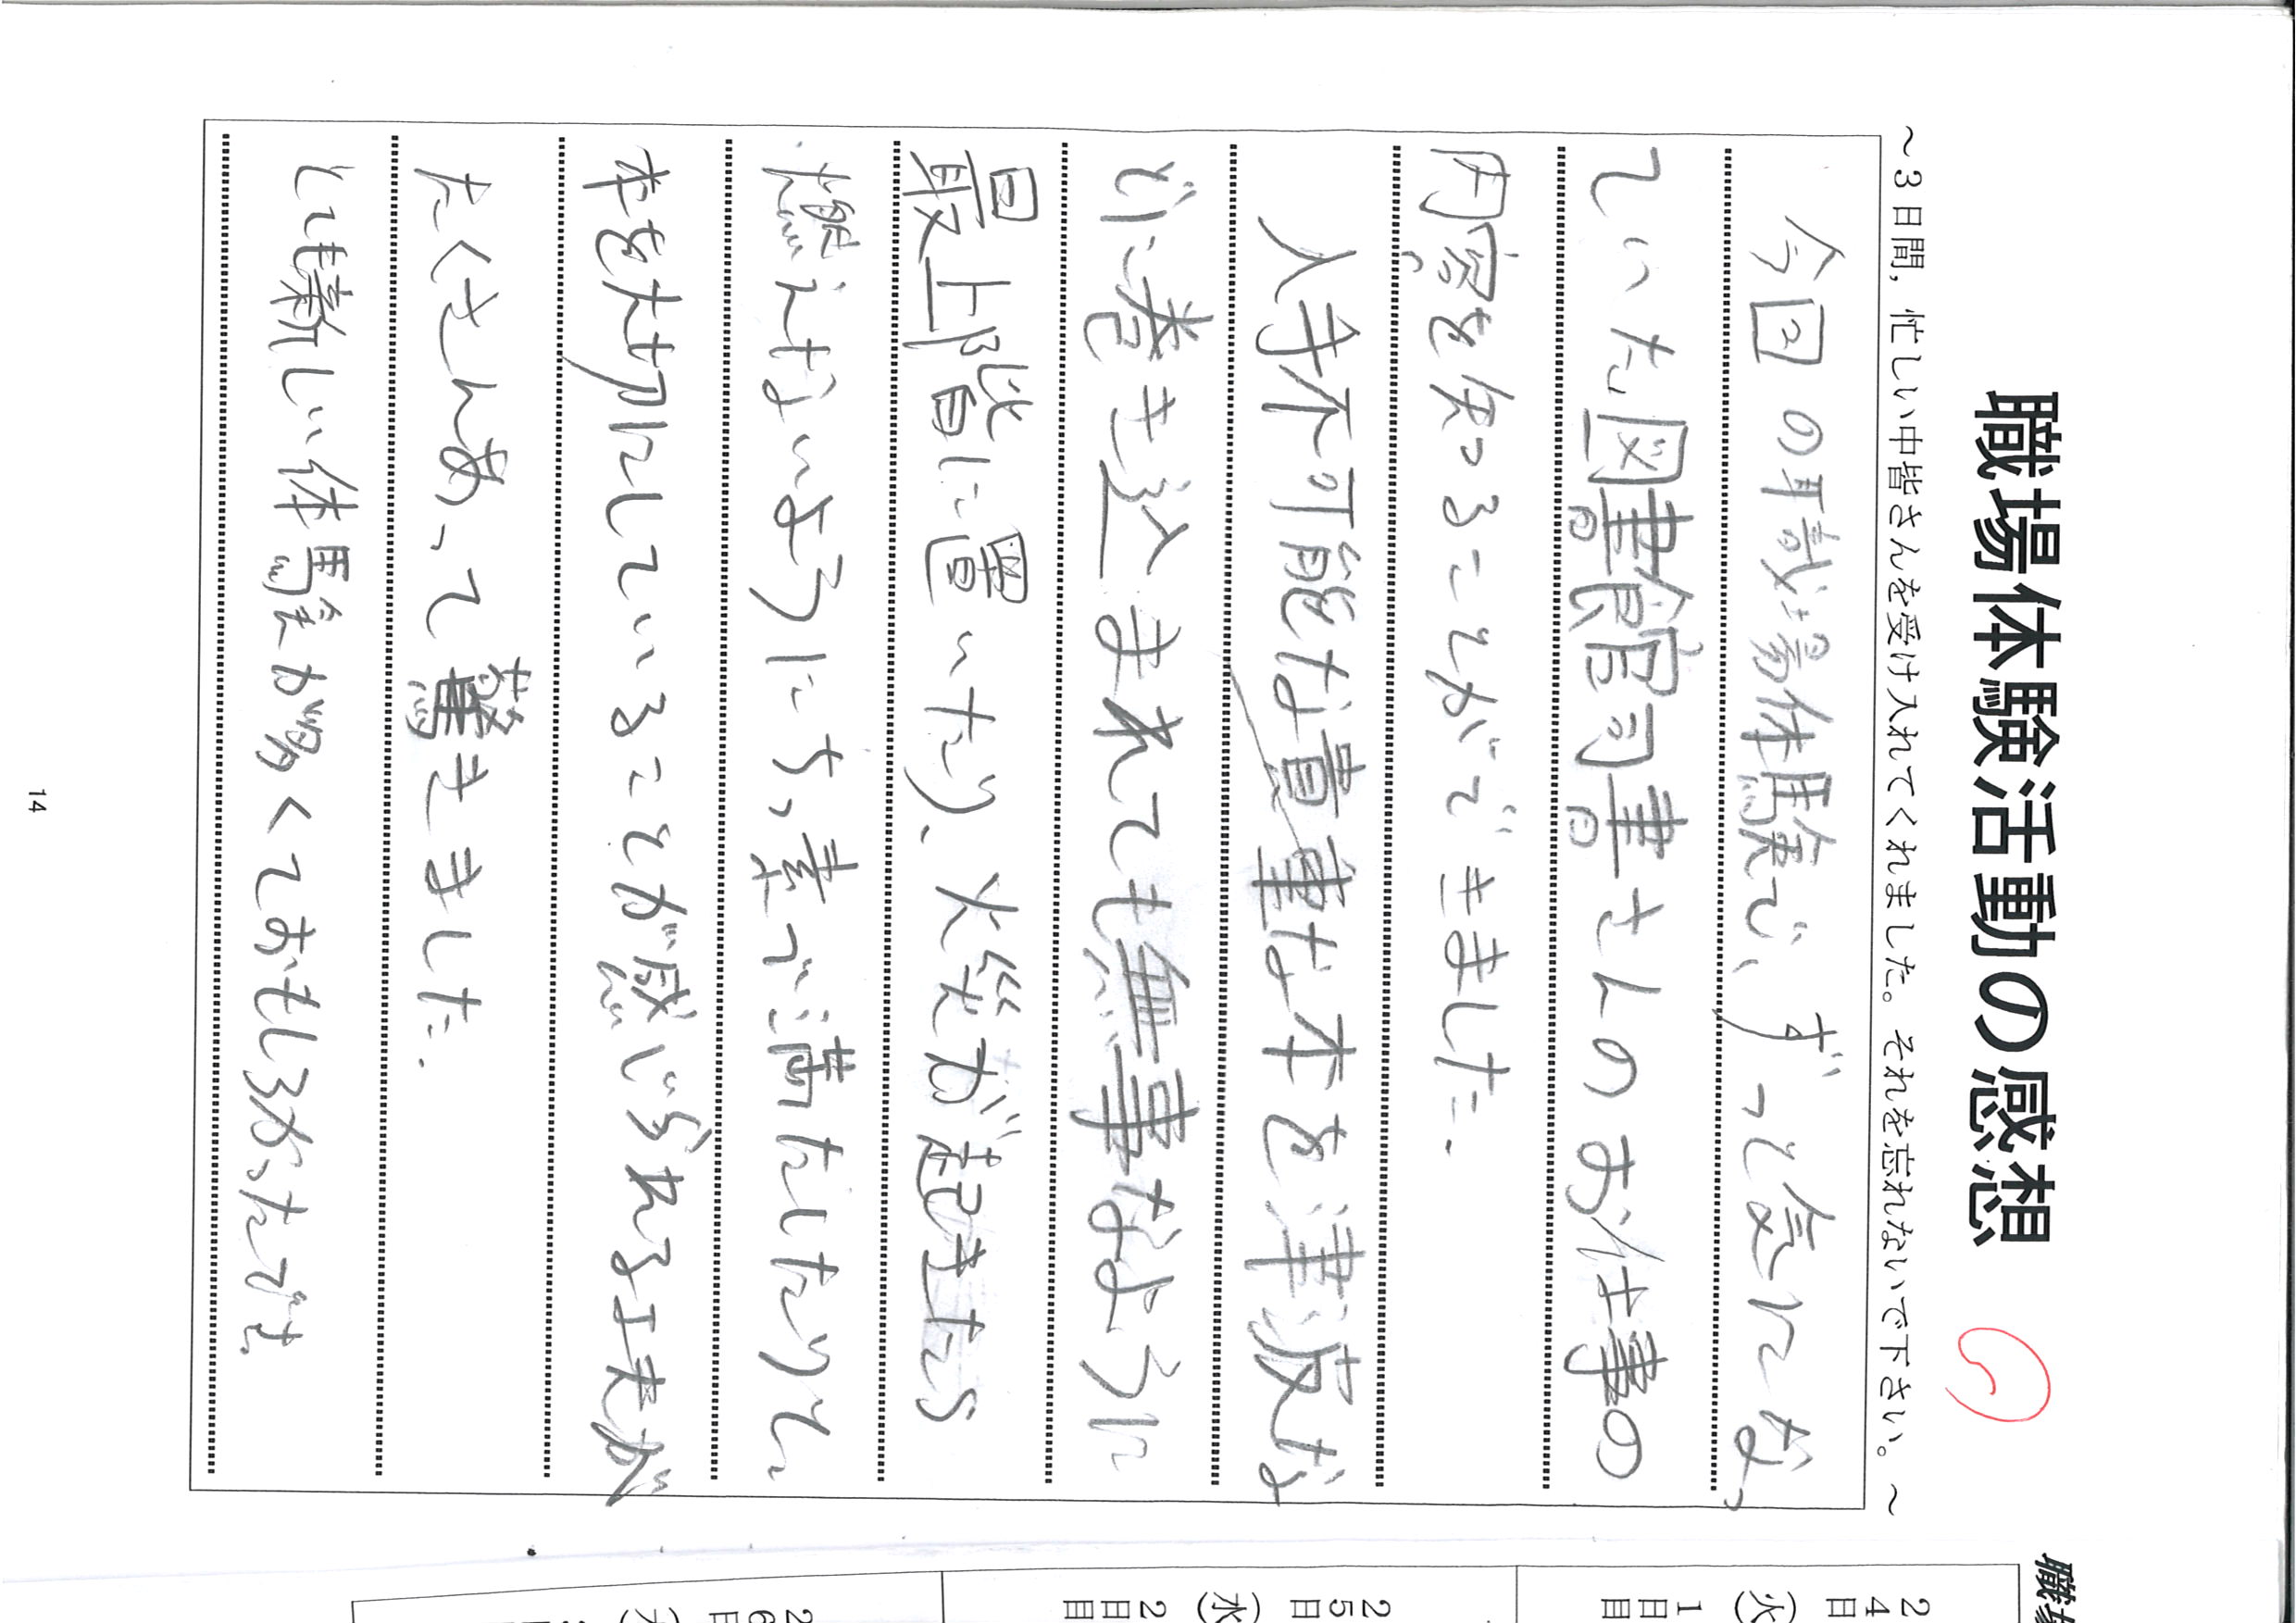 職場体験活動の感想
～3日間，忙しい中皆さんを受け入れてくれました。それを忘れないで下さい。～
今回の職場体験で、ずっと気になっ
ていた図書館司書さんのお仕事の
内容を知ることができました。
入手不可能な貴重な本を津波な
どに巻き込まれても無事なように
最上階に置いたり、火災が起きたら
燃えないようにちっ素で満たしたりと、
本を大切にしていることが感じられる工夫が
たくさんあって驚きました。
とても新しい体験が多くておもしろかったです。
14
職場
24日（火）1日目
25日（水）2日目